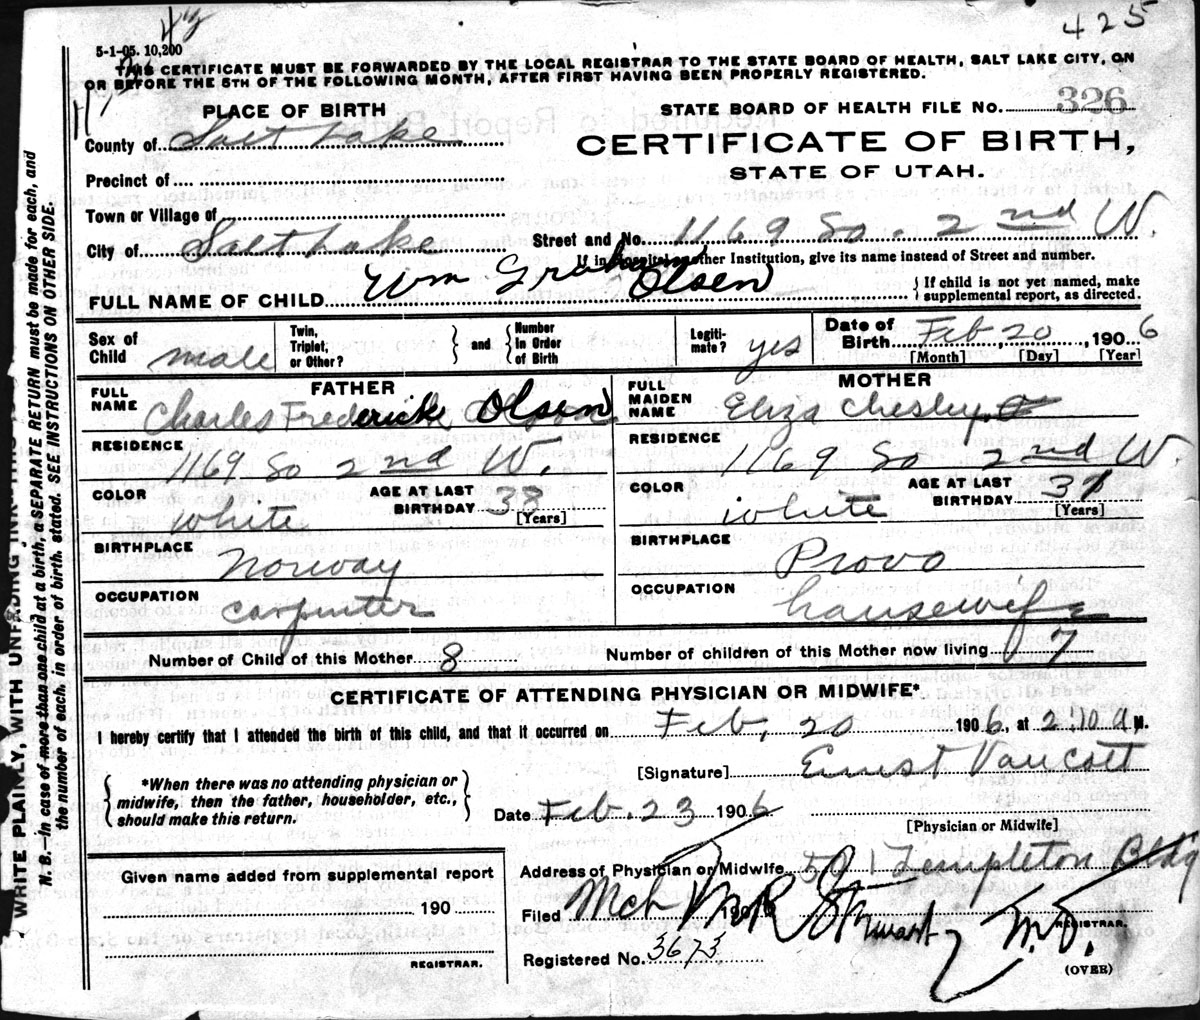 425
5-1-05. 10,200
THIS CERTIFICATE MUST BE FORWARDED BY THE LOCAL REGISTRAR TO THE STATE BOARD OF HEALTH, SALT LAKE CITY, ON
OR BEFORE THE 5TH OF THE FOLLOWING MONTH, AFTER FIRST HAVING BEEN PROPERLY REGISTERED.
PLACE OF BIRTH
STATE BOARD OF HEALTH FILE NO. 326
County of Salt Lake
CERTIFICATE OF BIRTH,
STATE OF UTAH.
Precinct of
Town or Village of
City of Salt Lake Street and No. 1169 So. 2nd W.
If in hospital or other Institution, give its name instead of Street and number.
FULL NAME OF CHILD Wm Graham Olsen
If child is not yet named, make
supplemental report, as directed.
Sex of Child male
Twin, Triplet, or Other?
and
Number in Order of Birth
Legiti-mate? yes
Date of Birth Feb, 20, 1906
[Month] [Day] [Year]
FATHER
FULL NAME Charles Frederick Olsen
RESIDENCE
1169 So 2nd W.
COLOR white
AGE AT LAST BIRTHDAY 38
[Years]
BIRTHPLACE
Norway
OCCUPATION
carpenter
MOTHER
FULL MAIDEN NAME Eliza Chesley
RESIDENCE
1169 So 2nd W
COLOR white
AGE AT LAST BIRTHDAY 37
[Years]
BIRTHPLACE
Provo
OCCUPATION
housewife
Number of Child of this Mother 8
Number of children of this Mother now living 7
CERTIFICATE OF ATTENDING PHYSICIAN OR MIDWIFE*
I hereby certify that I attended the birth of this child, and that it occurred on Feb, 20 1906, at 2:10 a M.
*When there was no attending physician or
midwife, then the father, householder, etc.,
should make this return.
[Signature] Ernest Vancott
Date Feb. 23 1906
[Physician or Midwife]
Given name added from supplemental report
190
REGISTRAR.
Address of Physician or Midwife 501 Templeton Bldg
Filed Mch 1906 M R Stewart M.D.
REGISTRAR.
Registered No. 3673
(OVER)
WRITE PLAINLY, WITH UNFADING INK-THIS
N. B.—In case of more than one child at a birth a SEPARATE RETURN must be made for each, and
the number of each, in order of birth, stated. SEE INSTRUCTIONS ON OTHER SIDE.